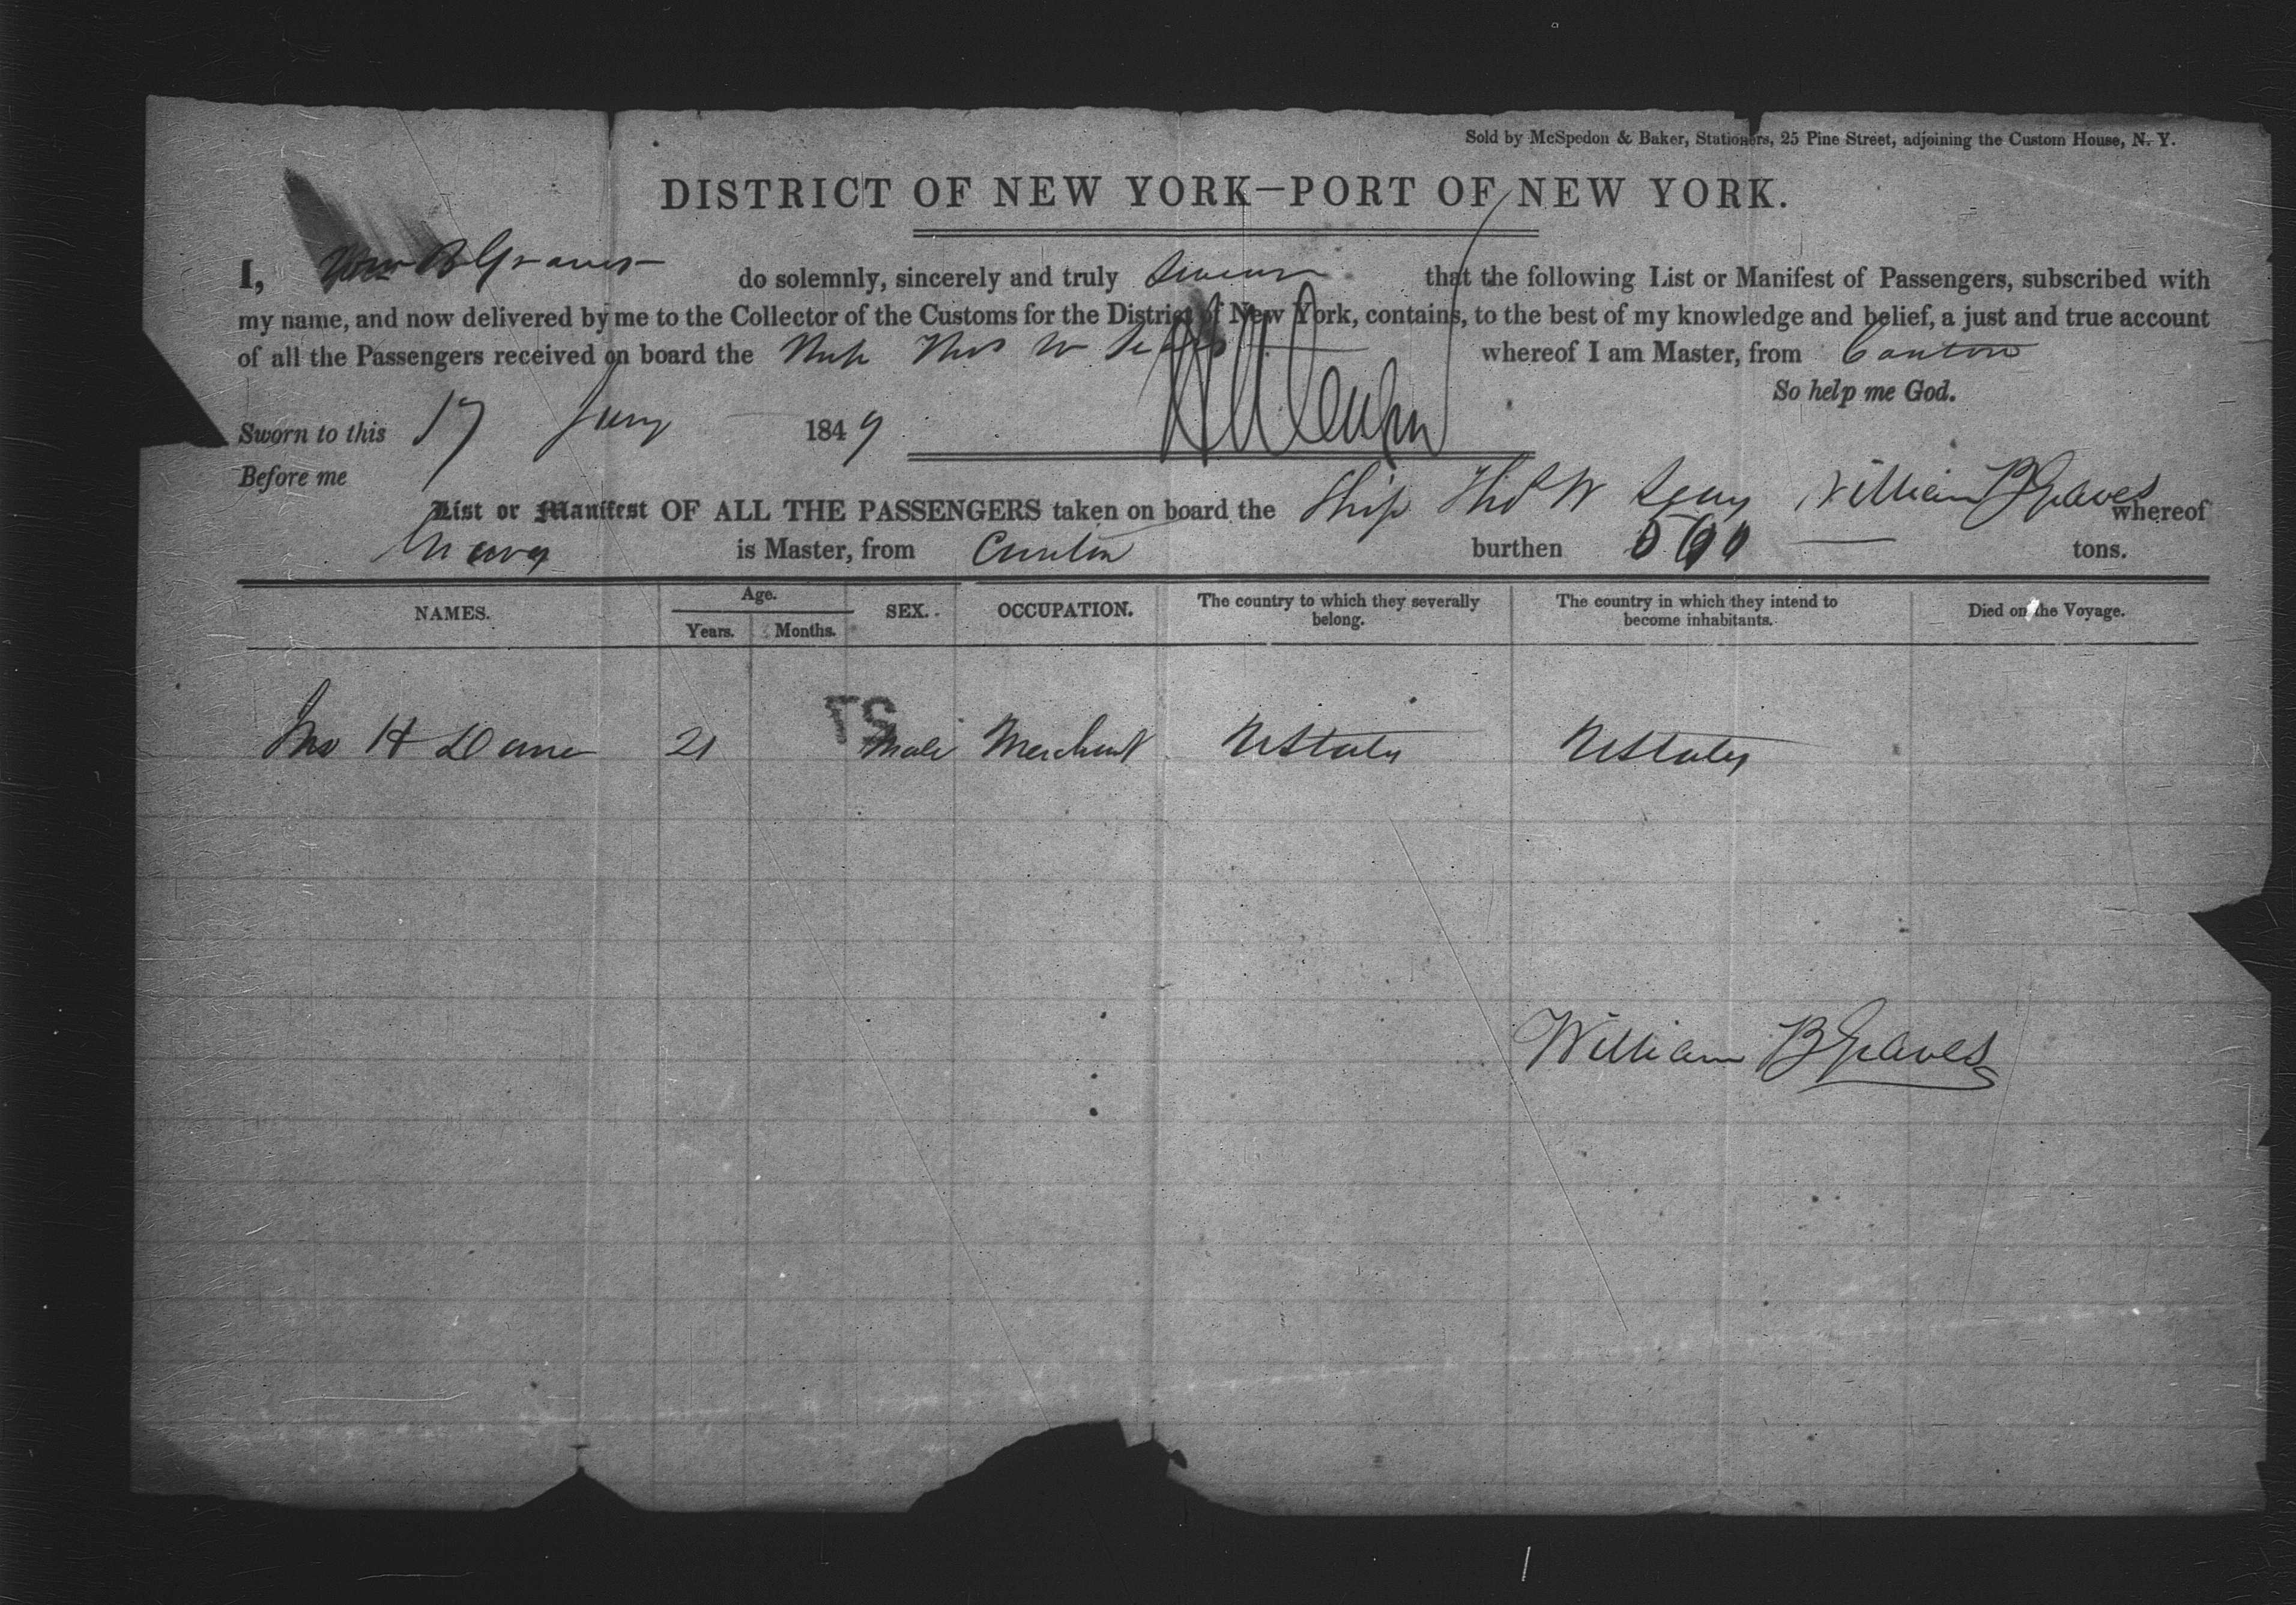 Sold by McSpedon & Baker, Stationers, 25 Pine Street, adjoining the Custom House, N. Y.
DISTRICT OF NEW YORK—PORT OF NEW YORK.
I, Wm B Graves do solemnly, sincerely and truly swear that the following List or Manifest of Passengers, subscribed with
my name, and now delivered by me to the Collector of the Customs for the District of New York, contains, to the best of my knowledge and belief, a just and true account
of all the Passengers received on board the Ship Thos W whereof I am Master, from Canton
So help me God.
Sworn to this 17 1849
Before me
List or Manifest OF ALL THE PASSENGERS taken on board the Ship Thos W Sears William B Graves whereof
Graves is Master, from Canton burthen 500 tons.
NAMES. Age. SEX. OCCUPATION. The country to which they severally belong. The country in which they intend to become inhabitants. Died on the Voyage.
Years. Months.
Jno H Dane 21 Male Merchant U States U States
William B Graves